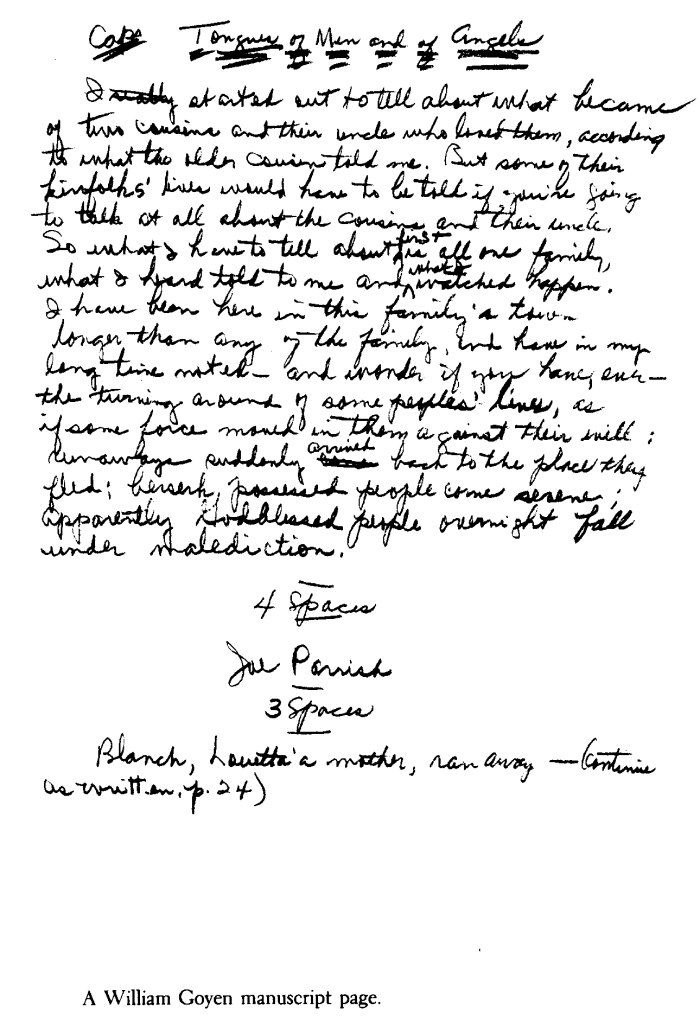 Caps Tongues of Men and of Angels
I really started out to tell about what became
of two cousins and their uncle who loved them, according
to what the older cousin told me. But some of their
kinfolks' lives would have to be told if you're going
to talk at all about the cousins and their uncle.
So what I have to tell about first is all one family,
what I heard told to me and what I watched happen.
I have been here in this family's town
longer than any of the family, and have in my
long time noted—and wonder if you have, ever—
the turning around of some peoples' lives, as
if some force moved in them against their will:
runaways suddenly arrived back to the place they
fled; berserk, possessed people come serene;
apparently Godblessed people overnight fall
under malediction.
4 Spaces
Joe Parrish
3 Spaces
Blanch, Louetta's mother, ran away — (Continue
as written, p. 24)
A William Goyen manuscript page.